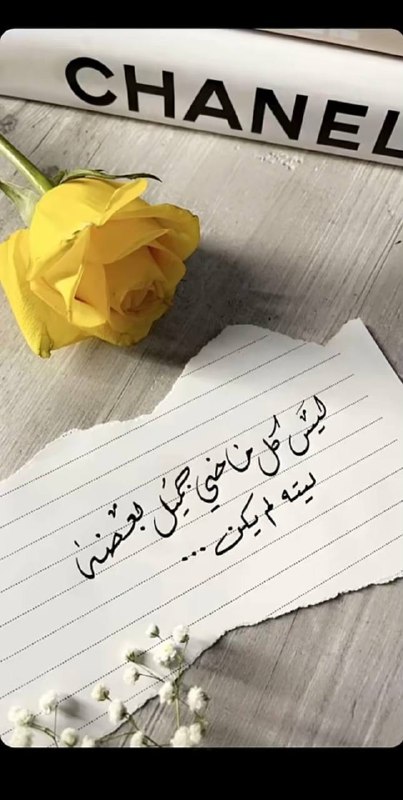 CHANEL
ليسَ كل ماضي جميَل بعْضهُ
ليته لم يكن...